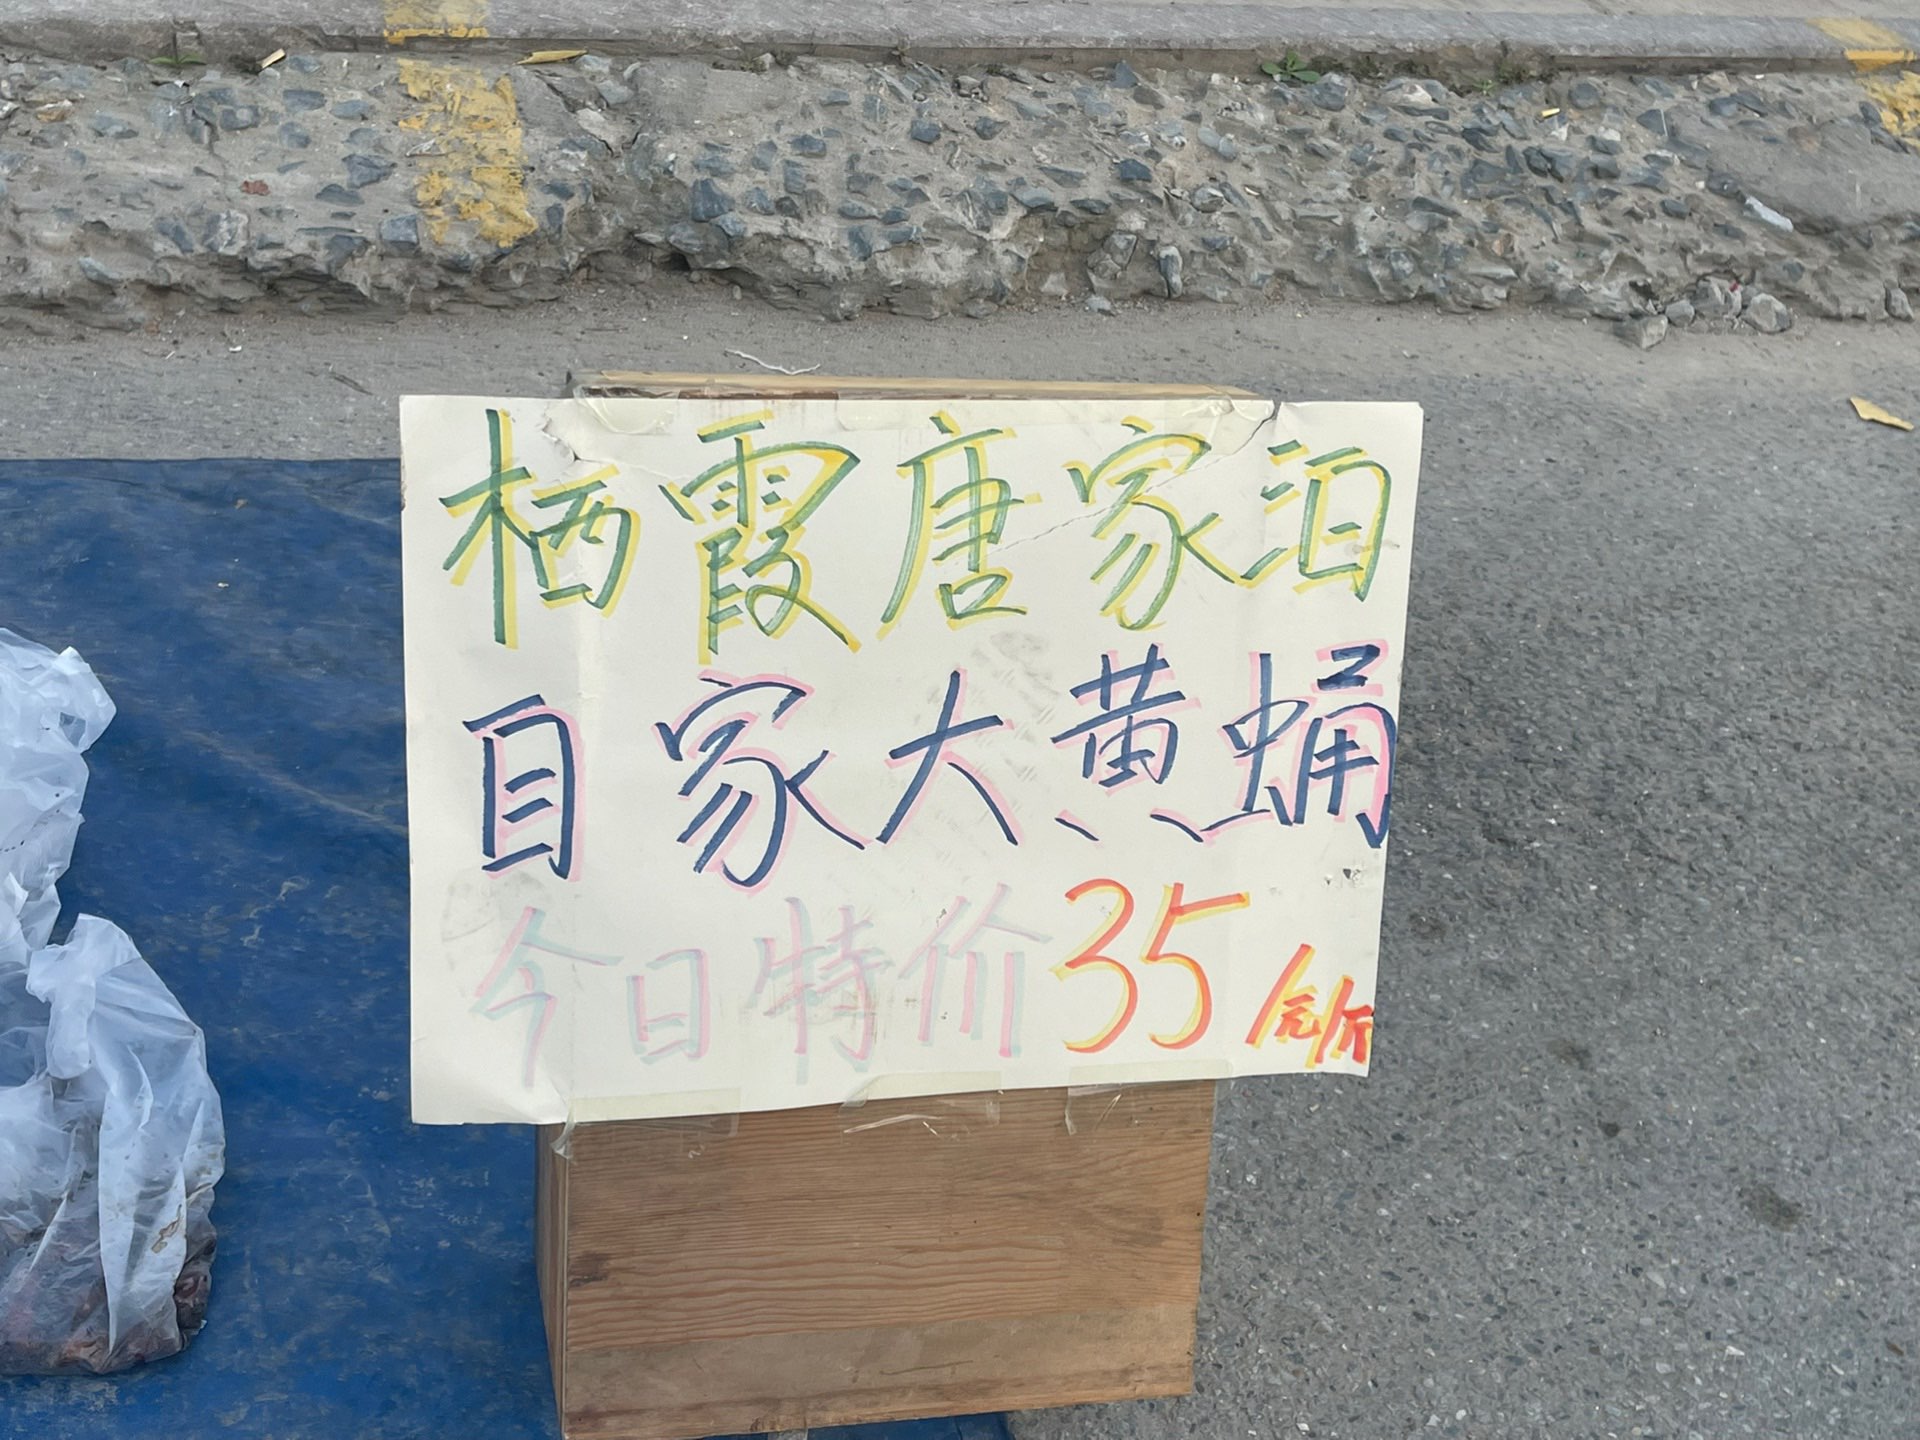 栖霞唐家泊
自家大黄蛹
今日特价35/元/斤